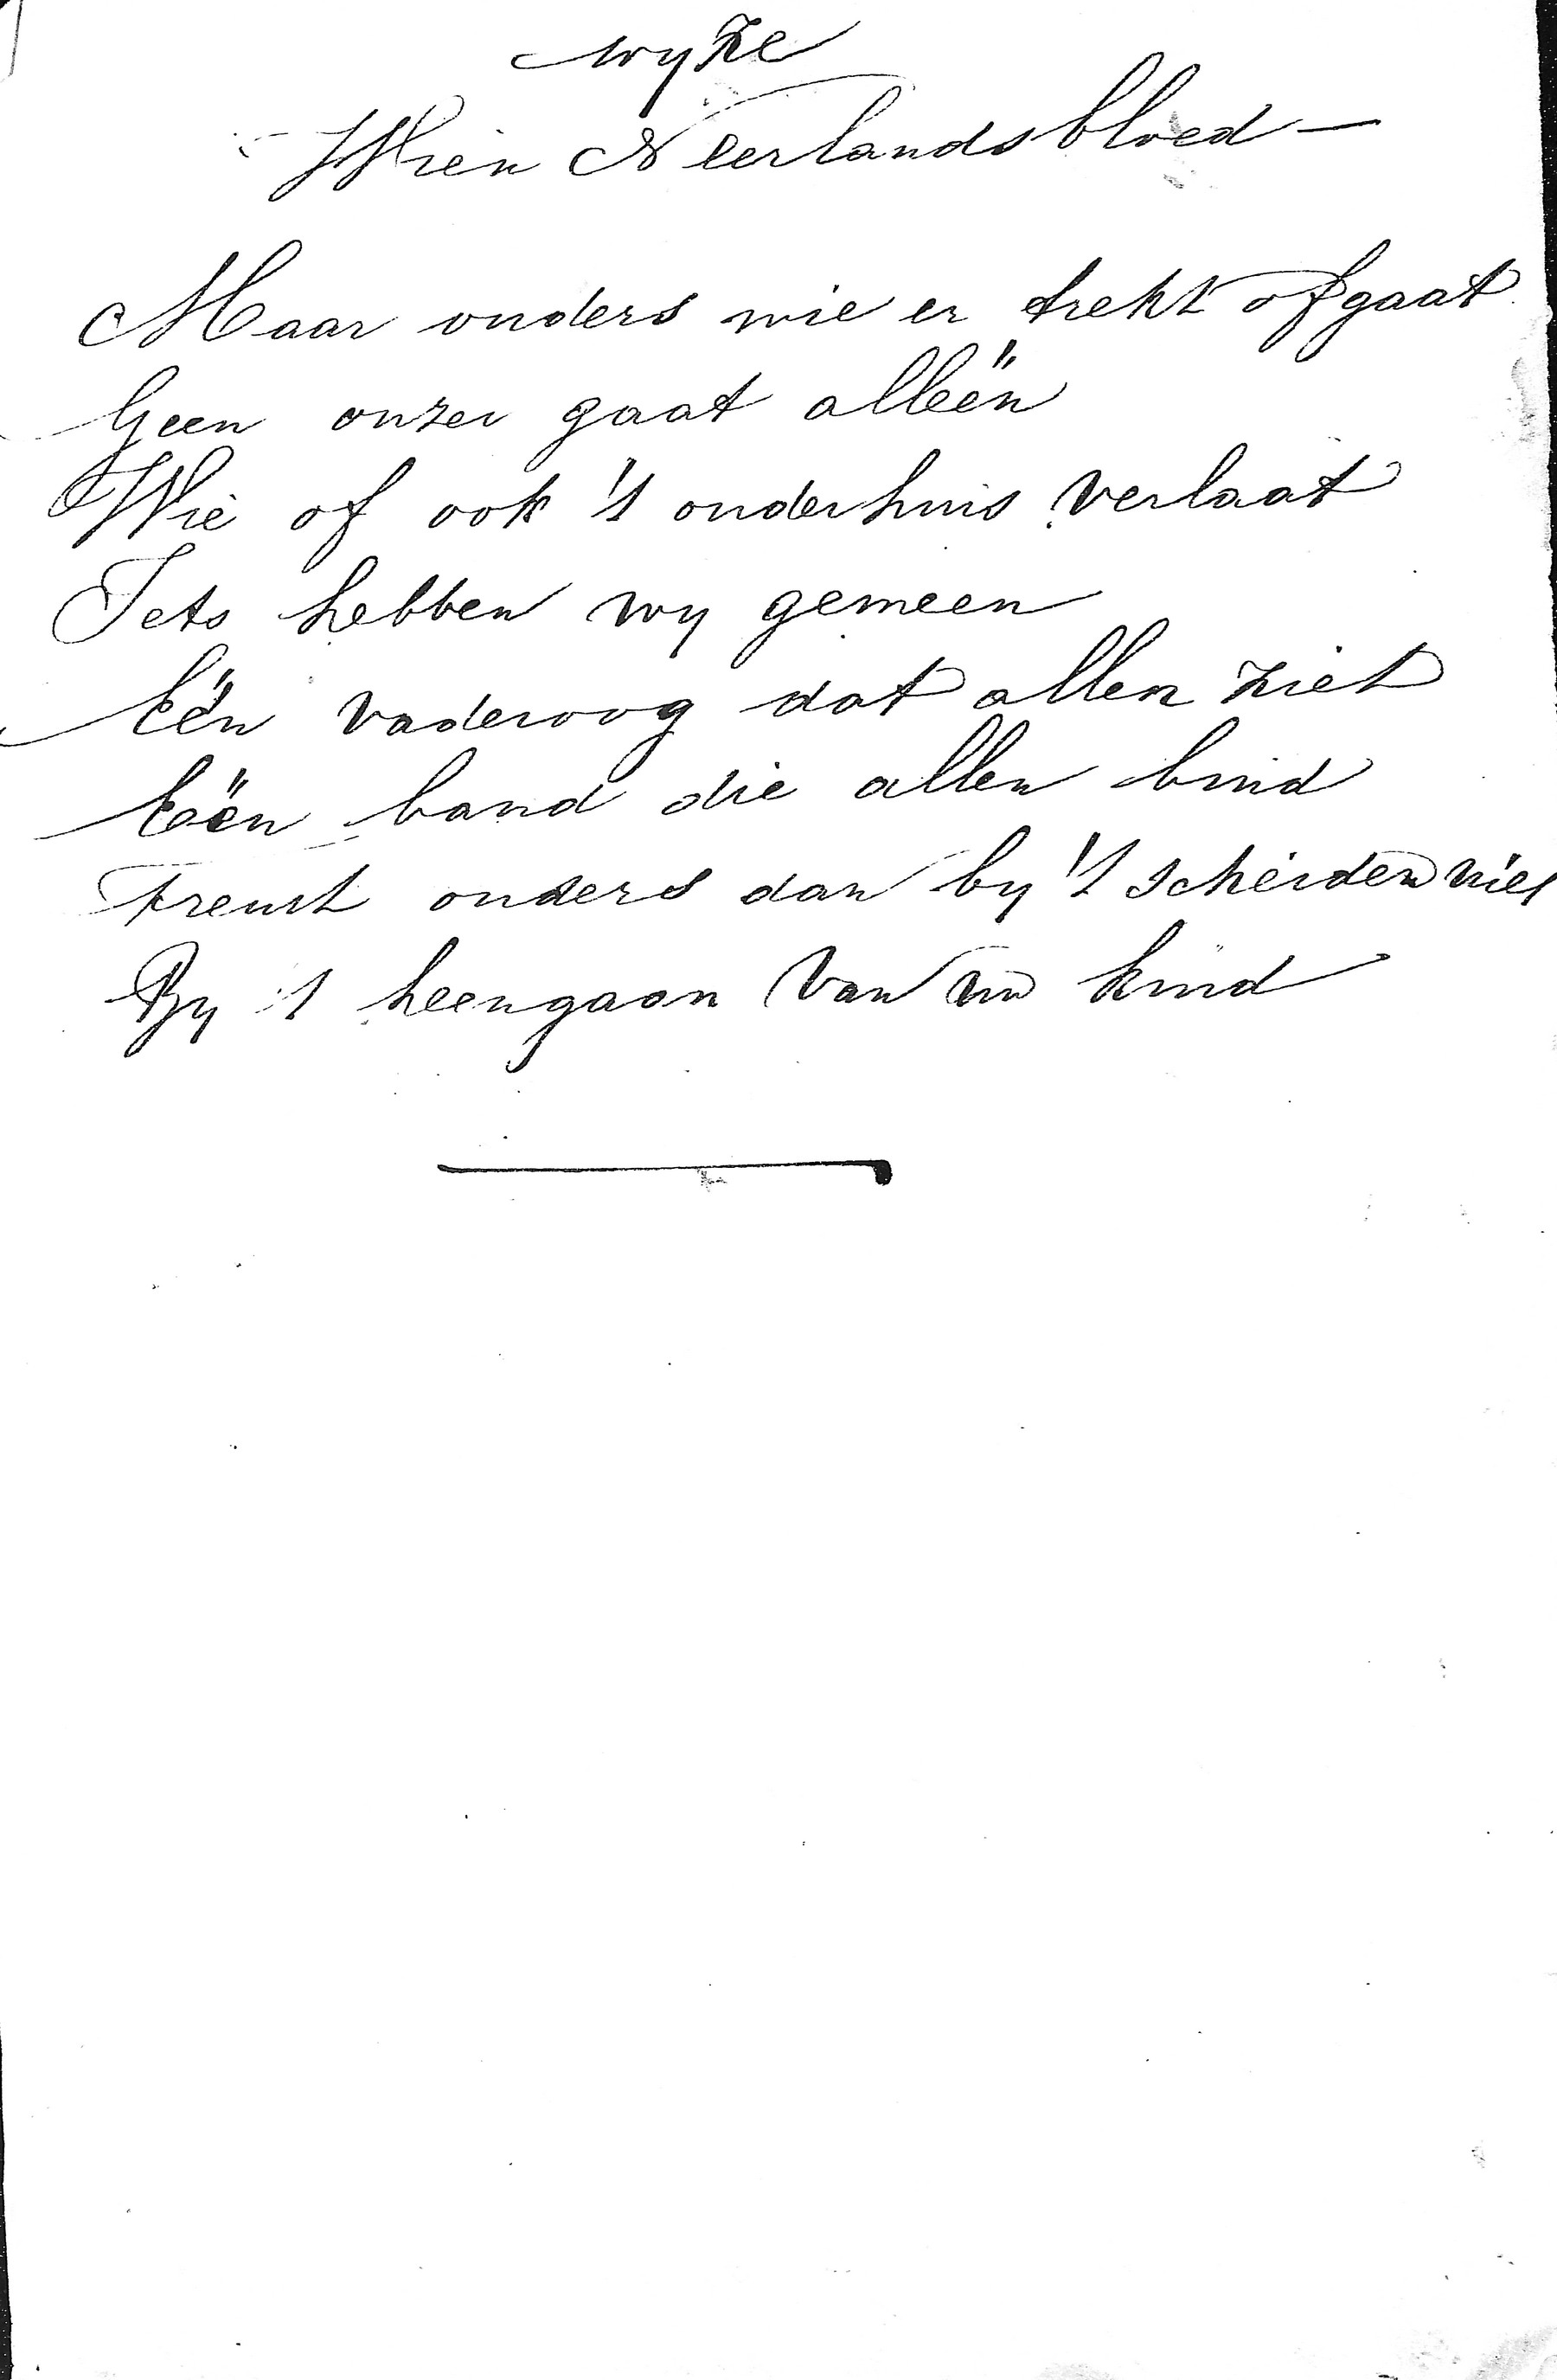 wyze
Wien Neerlandsbloed —
Maar ouders wie er trekt of gaat
Geen onzer gaat alleën
Wie of ook 't ouderhuis verlaat
Iets hebben wy gemeen
Eën vaderoog dat allen ziet
Eën band die allen bind
treurt ouders dan by 't scheiden niet
By 't heengaan van uw kind